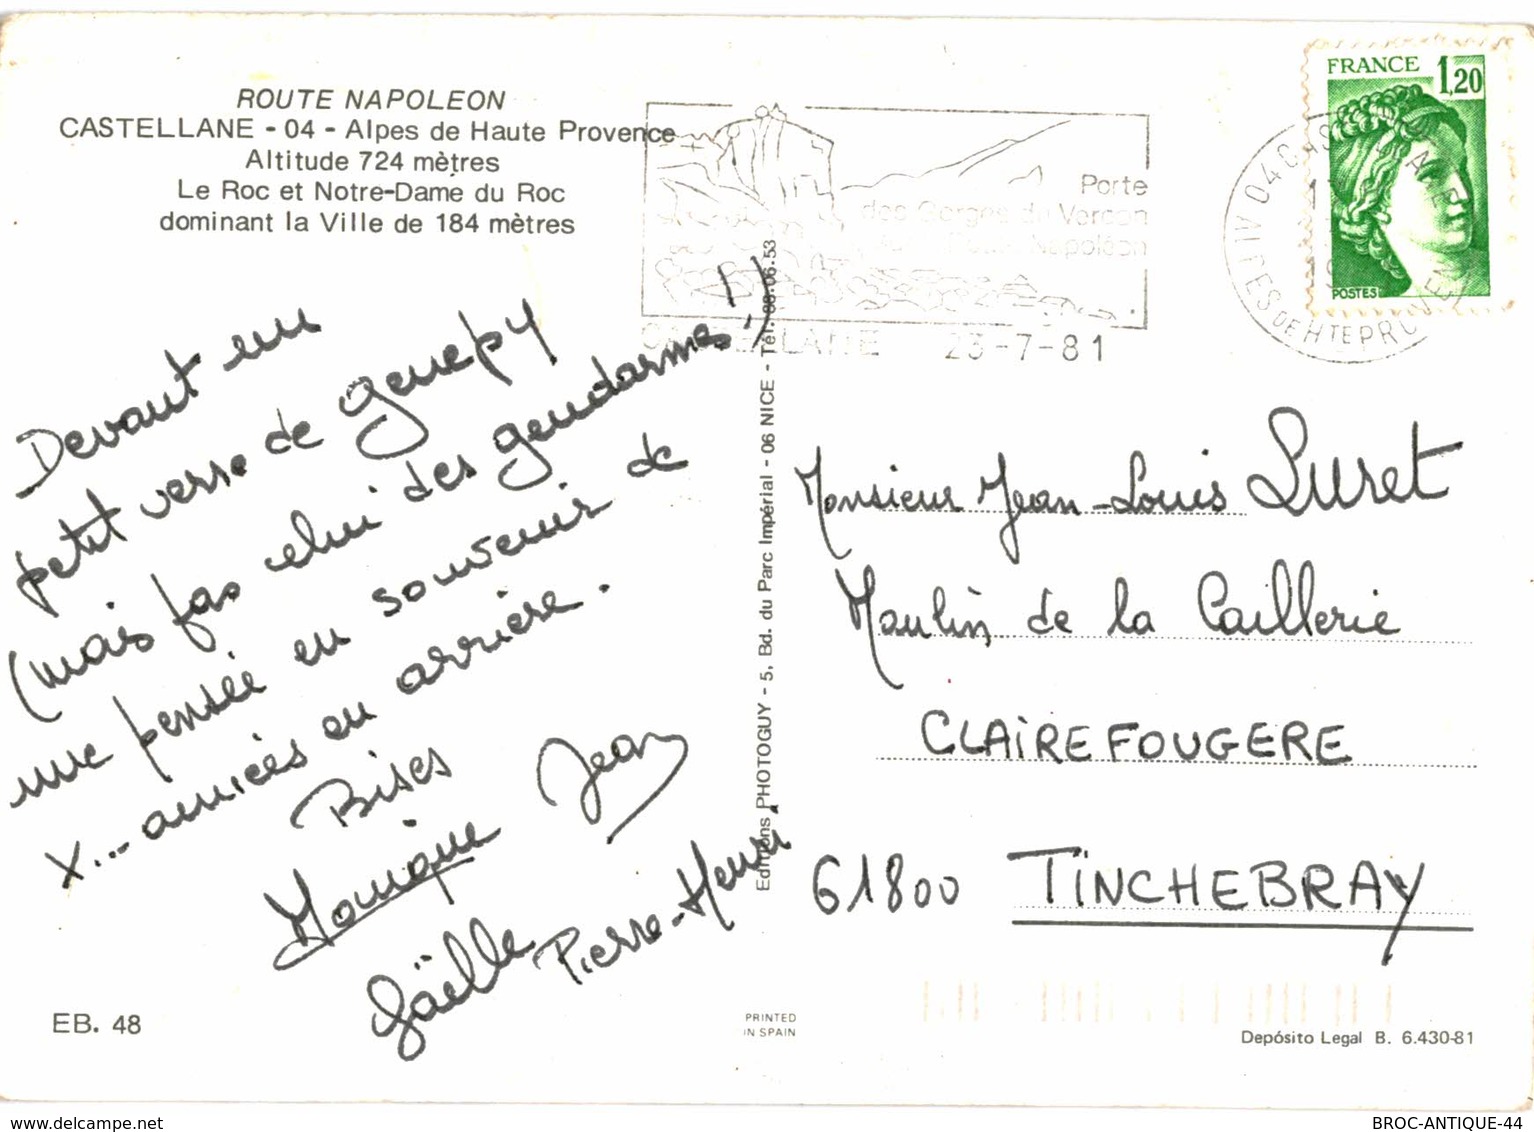 ROUTE NAPOLEON
CASTELLANE - 04 - Alpes de Haute Provence
Altitude 724 mètres
Le Roc et Notre-Dame du Roc
dominant la Ville de 184 mètres
Porte
des Gorges du Verdon
Napoléon
CASTELLANE 23-7-81
FRANCE 1,20
POSTES
04 CASTELLANE
ALPES DE HTE PROVENCE
Devant un
petit verre de genepy
(mais pas celui des gendarmes!)
une pensée en souvenir de
x... années en arrière.
Bises
Monique Jean
Gaëlle Pierre-Henri
Editions PHOTOGUY - 5, Bd. du Parc Impérial - 06 NICE - Tél. 88.06.53
Monsieur Jean-Louis Luret
Moulin de la Caillerie
CLAIREFOUGERE
61800 TINCHEBRAY
EB. 48
PRINTED
IN SPAIN
Depósito Legal B. 6.430-81
www.delcampe.net
BROC-ANTIQUE-44